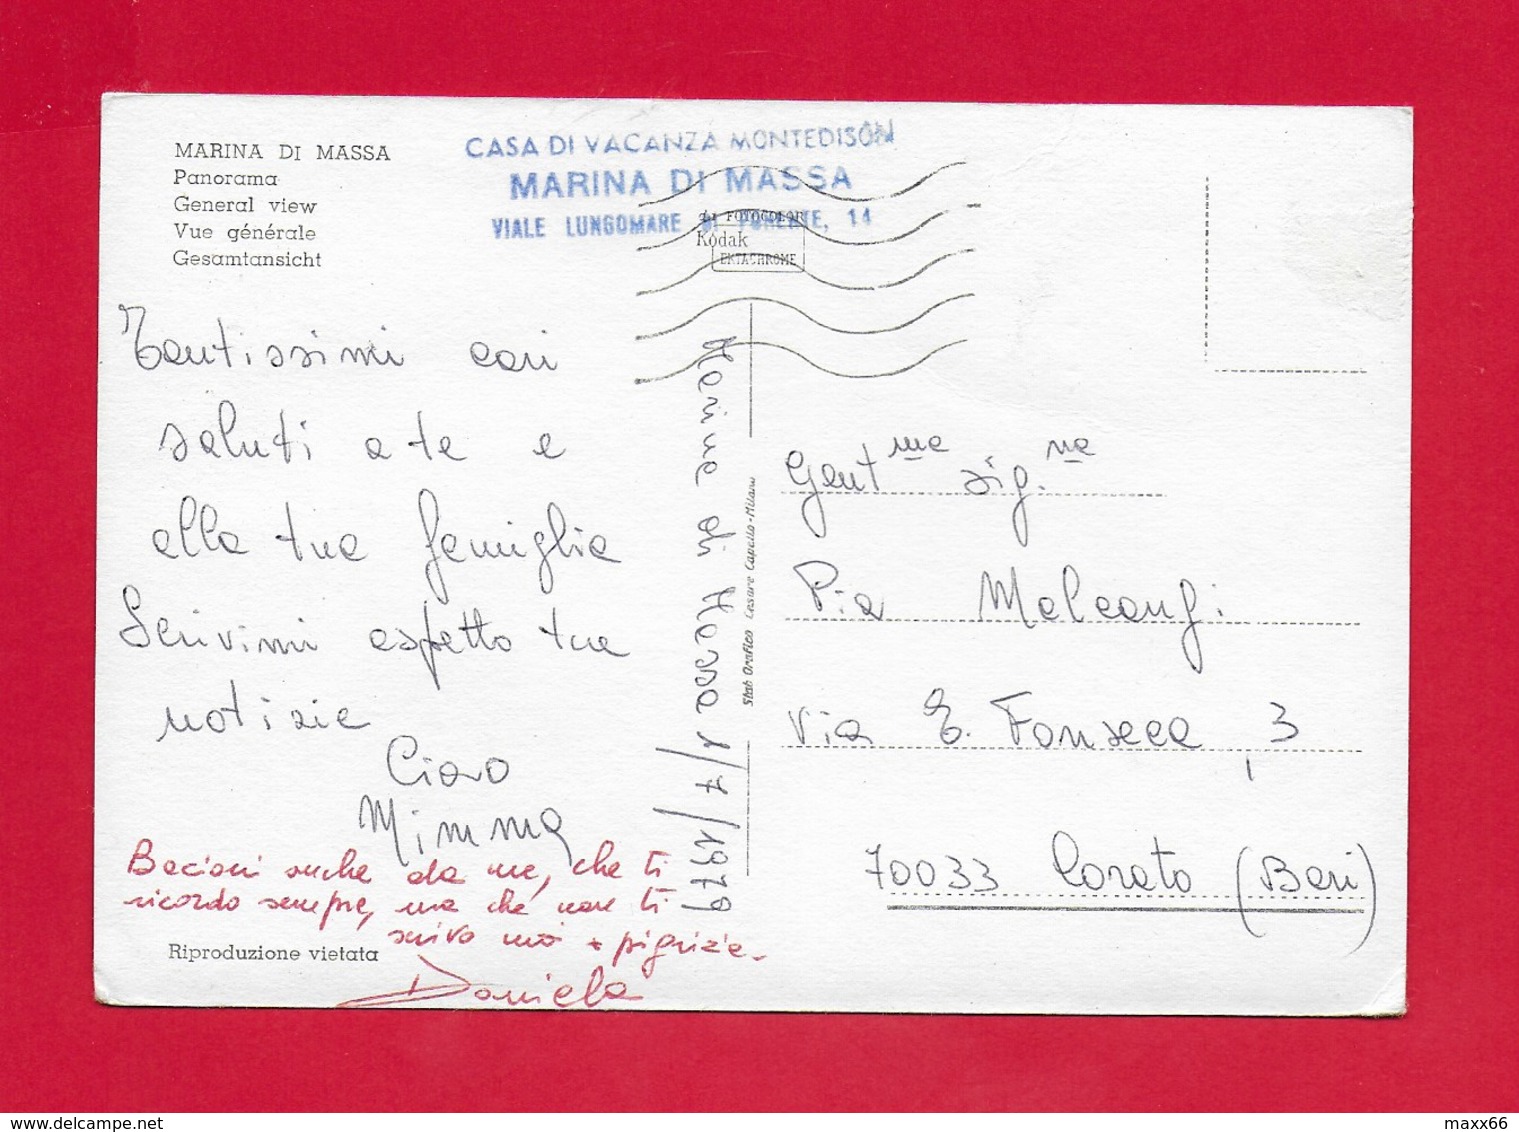 MARINA DI MASSA
Panorama
General view
Vue générale
Gesamtansicht
CASA DI VACANZA MONTEDISON
MARINA DI MASSA
VIALE LUNGOMARE DI PONENTE, 14
da FOTOCOLOR
Kodak
EKTACHROME
Tantissimi cari
saluti a te e
alla tua famiglia
Scrivimi aspetto tue
notizie
Ciao
Mimma
Bacioni anche da me, che ti
ricordo sempre, ma che non ti
scrivo mai x pigrizia.
Daniela
Riproduzione vietata
Marina di Massa 1/7/1979
Stab Grafico Cesare Capello-Milano
Gent.ma sig.na
Pia Malcangi
Via E. Fonseca, 3
70033 Corato (Bari)
delcampe.net
maxx66